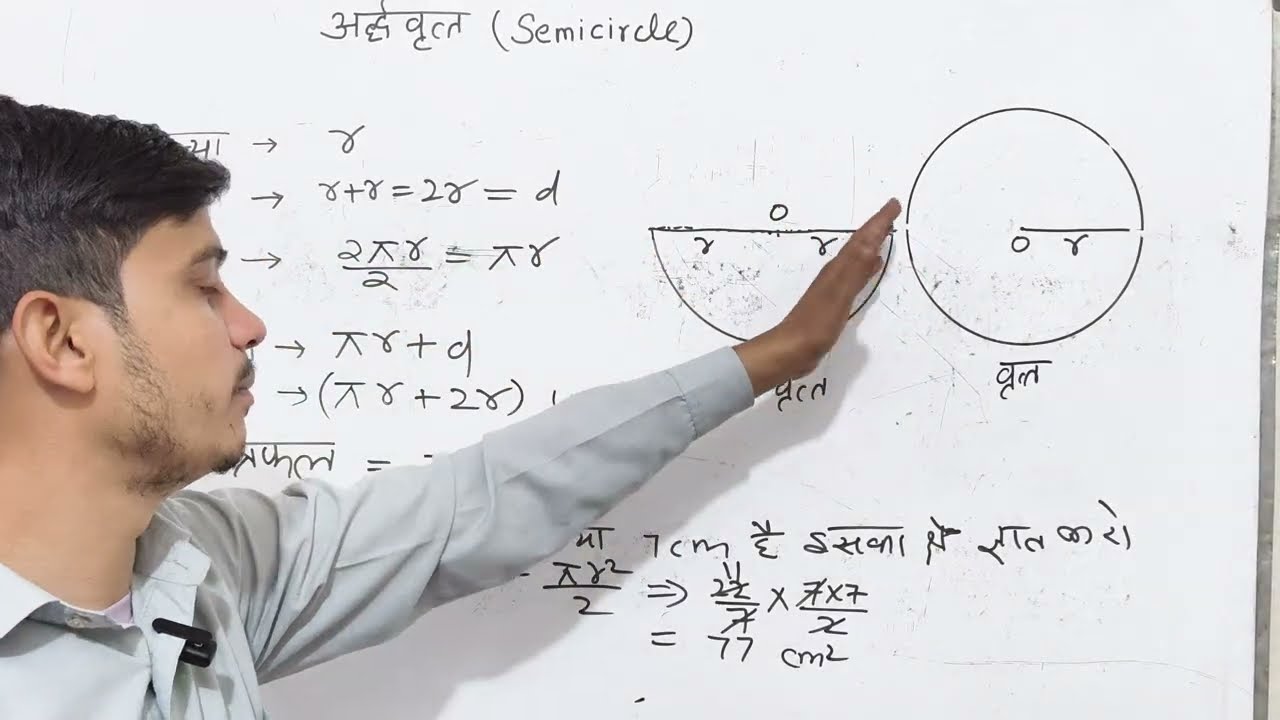 अर्द्धवृत्त (Semicircle)
→ r
→ r+r=2r = d
→ 2πr/2 = πr
→ πr+d
→ (πr+2r)
=
O
r r
वृत्त
O r
वृत्त
7cm है इसका क्षे ज्ञात करो
πr²/2 ⇒ 22/7 × 7×7/2
11
= 77 cm²